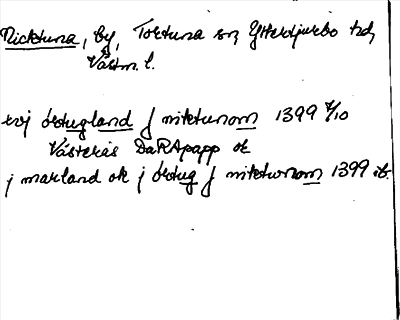 Nicktuna, by, Tortuna sn, Yttertjurbo hd,
Västm. l.
xvj örtugland j niktunom 1399 8/10
Västerås DaRApapp ok
j markland ok j örtug j niktunom 1399 ib.